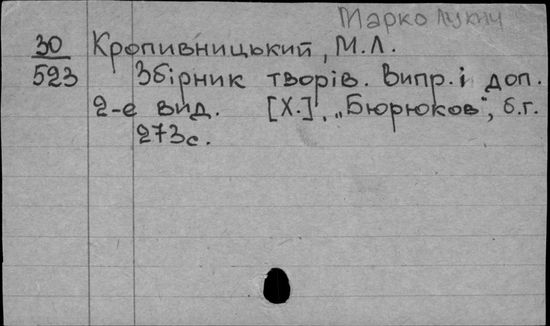 Марко Лукич
30 Кропивницький, М.Л.
523 Збірник творів. Випр. і доп.
2-е вид. [Х.], „Бюрюков", б.г.
273с.